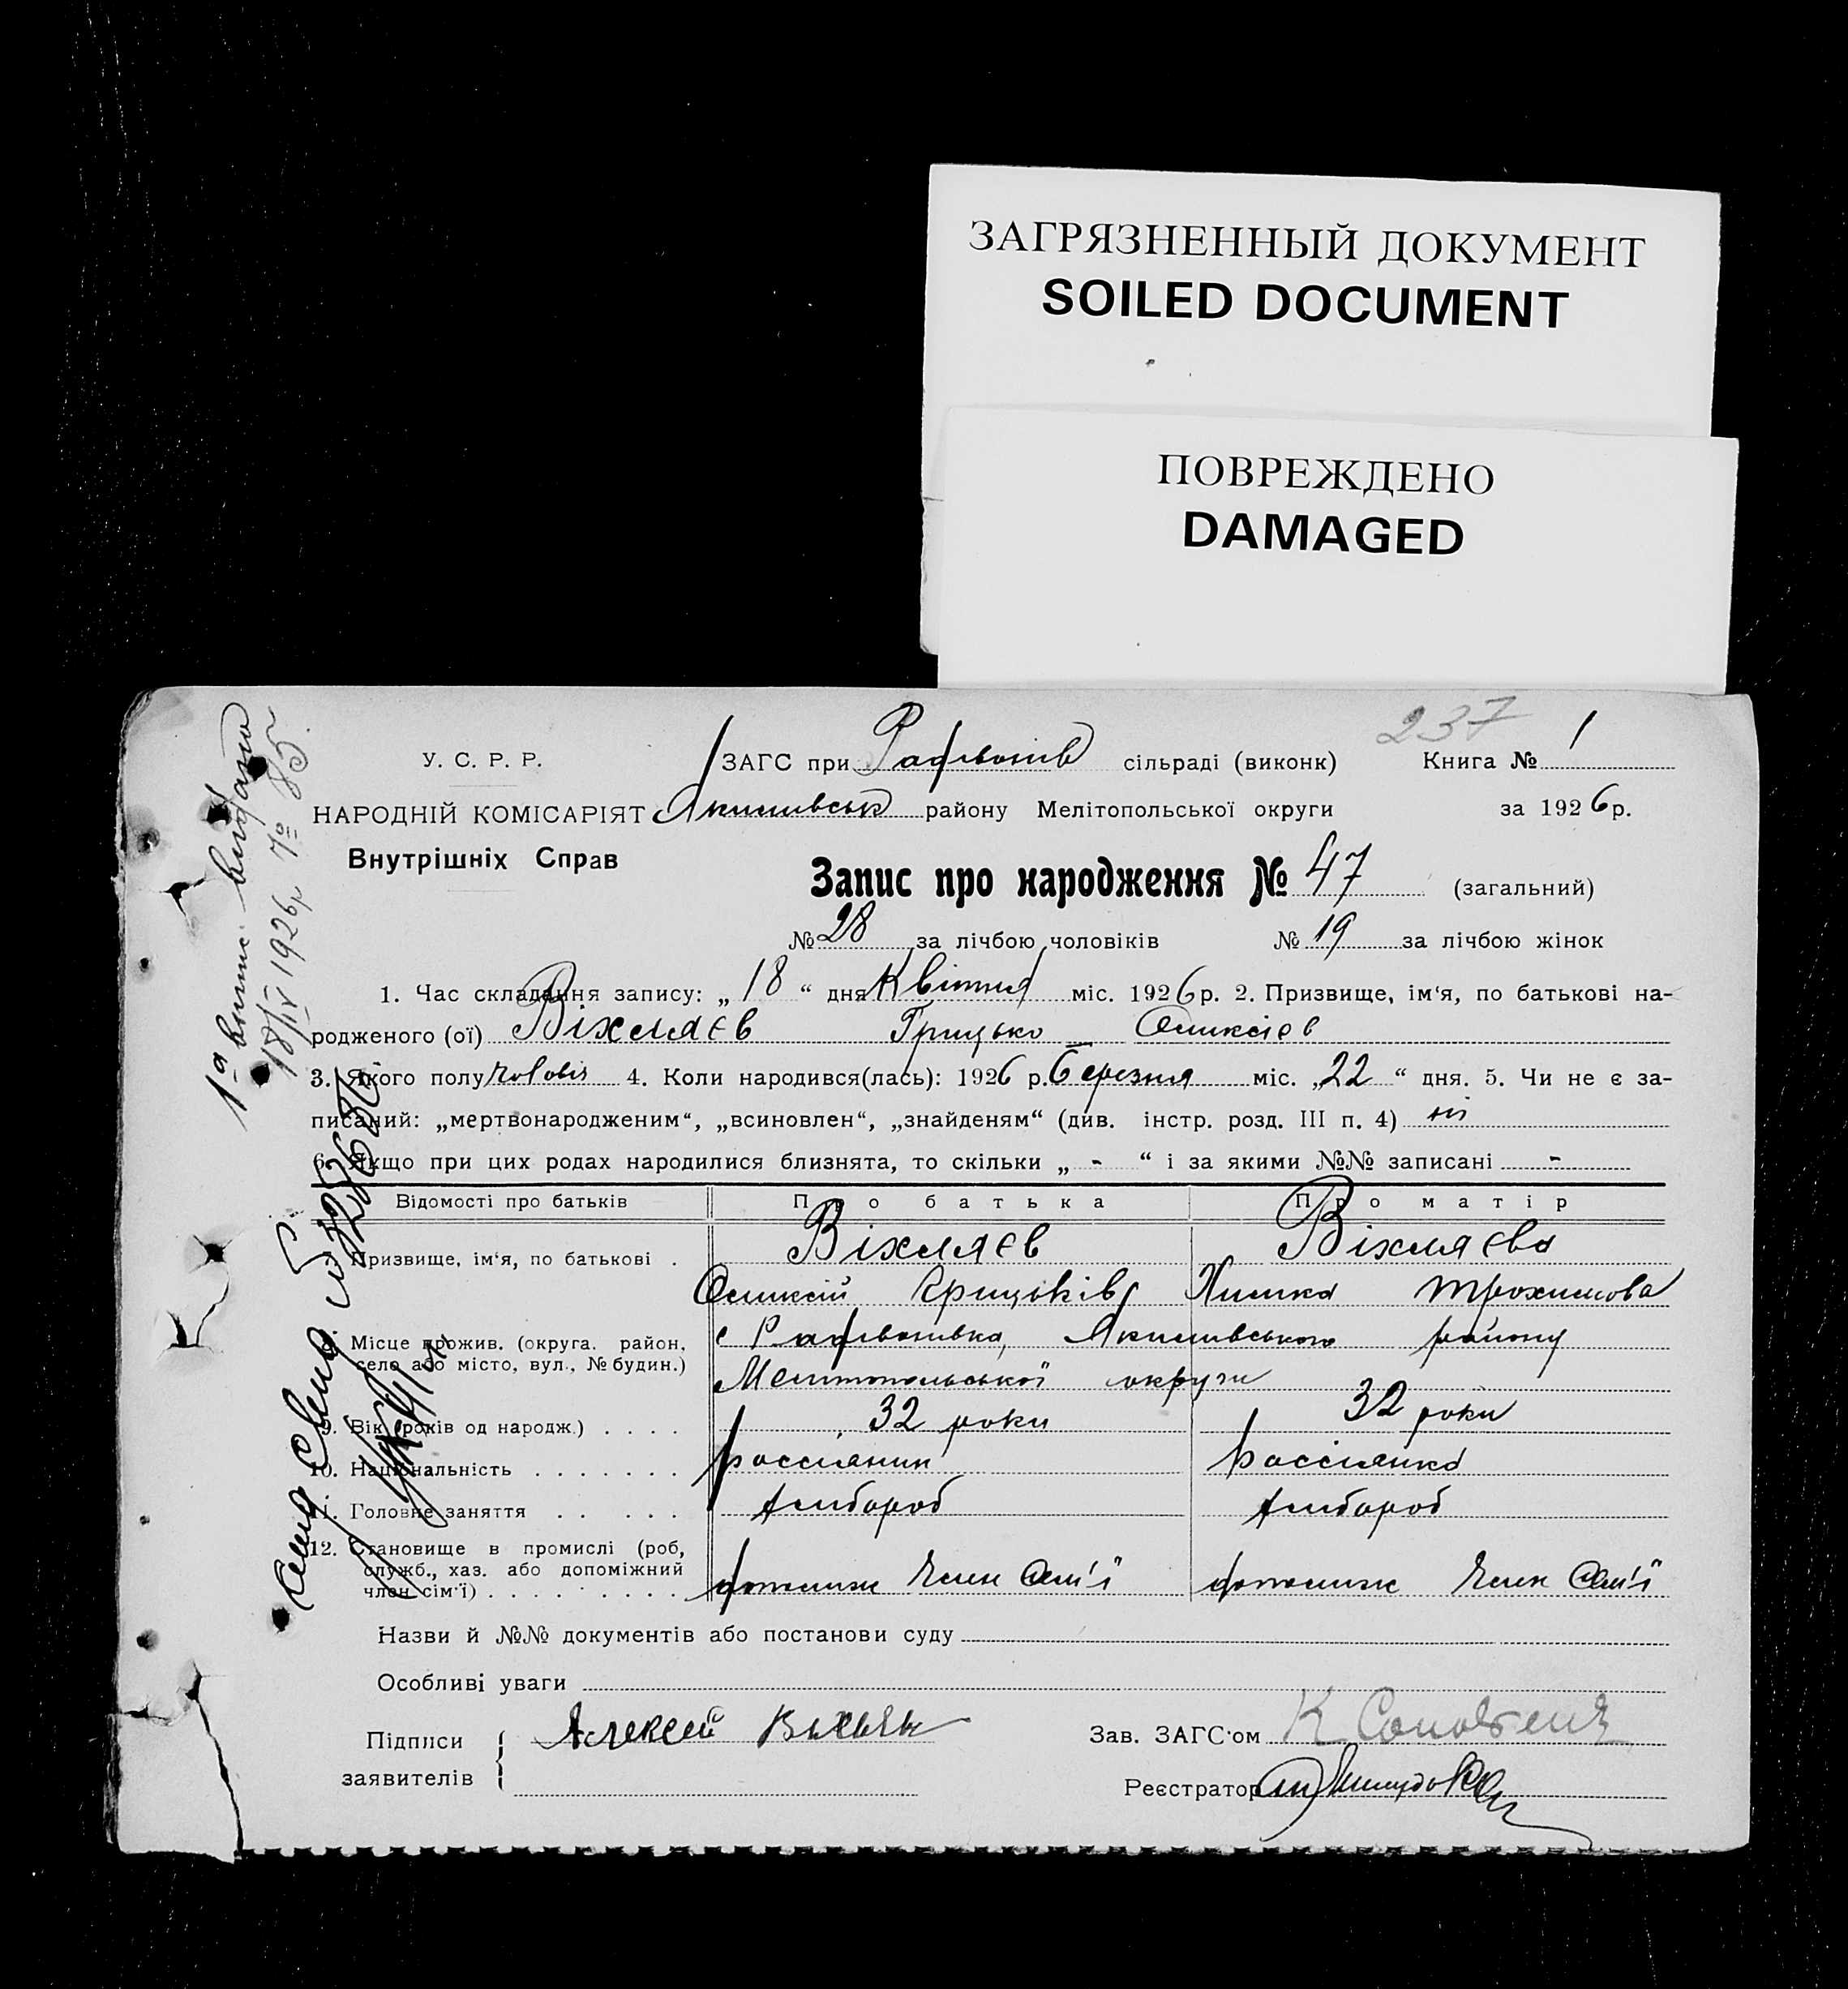 ЗАГРЯЗНЕННЫЙ ДОКУМЕНТ
SOILED DOCUMENT
ПОВРЕЖДЕНО
DAMAGED
237
У. С. Р. Р. ЗАГС при сільраді (виконк) Книга № 1
НАРОДНІЙ КОМІСАРІЯТ Якимівськ району Мелітопольської округи за 1926 р.
Внутрішніх Справ
Запис про народження № 47 (загальний)
№ 28 за лічбою чоловіків № 19 за лічбою жінок
1. Час складання запису: „ 18 “ дня Квітня міс. 1926 р. 2. Призвище, ім‘я, по батькові на-
родженого (ої) Віхляєв Грицько Оликсієв
3. Якого полу чоловіч 4. Коли народився(лась): 1926 р. Березня міс. „ 22 “ дня. 5. Чи не є за-
писаний: „мертвонародженим“, „всиновлен“, „знайденям“ (див. інстр. розд. III п. 4) ні
6. Якщо при цих родах народилися близнята, то скільки „ - “ і за якими №№ записані -
Відомості про батьків Про батька Про матір
7. Призвище, ім‘я, по батькові . Віхляєв Віхляєва
Оликсій Грицьків Химка Трохимова
8. Місце прожив. (округа. район, с Якимівського району
село або місто, вул., № будин.) Мелитопольської округи
9. Вік (років од народж.) . . . . 32 роки 32 роки
10. Національність . . . . . . . россіянин россіянка
11. Головне заняття . . . . . хлібороб хлібороб
12. Становище в промислі (роб,
служб., хаз. або допоміжний допоміж член сім'ї допоміж член сім'ї
член сім‘ї) . . . . . . . . .
Назви й №№ документів або постанови суду
Особливі уваги
Підписи Алексей Зав. ЗАГС‘ом
заявителів
Реєстратор
1а випис. видано
18/IV 1926р 7º 85